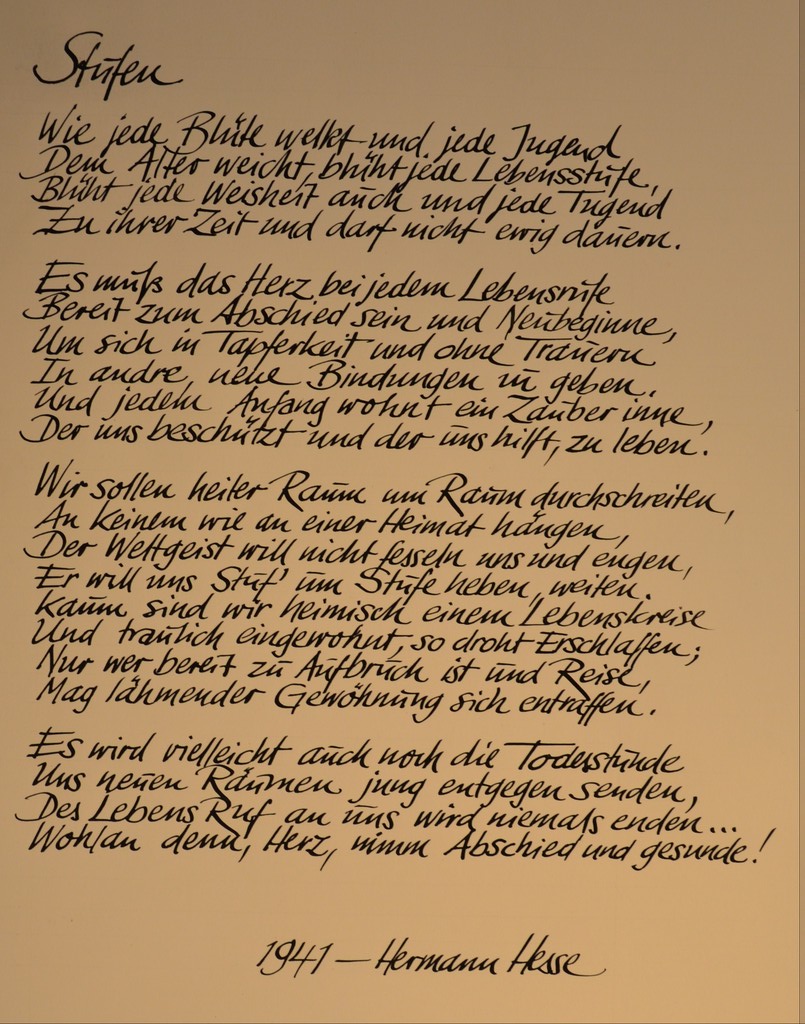 Stufen
Wie jede Blüte welkt und jede Jugend
Dem Alter weicht, blüht jede Lebensstufe,
Blüht jede Weisheit auch und jede Tugend
Zu ihrer Zeit und darf nicht ewig dauern.
Es muß das Herz bei jedem Lebensrufe
Bereit zum Abschied sein und Neubeginne,
Um sich in Tapferkeit und ohne Trauern
In andre, neue Bindungen zu geben.
Und jedem Anfang wohnt ein Zauber inne,
Der uns beschützt und der uns hilft, zu leben.
Wir sollen heiter Raum um Raum durchschreiten,
An keinem wie an einer Heimat hängen,
Der Weltgeist will nicht fesseln uns und engen,
Er will uns Stuf' um Stufe heben, weiten.
Kaum sind wir heimisch einem Lebenskreise
Und traulich eingewohnt, so droht Erschlaffen;
Nur wer bereit zu Aufbruch ist und Reise,
Mag lähmender Gewöhnung sich entraffen.
Es wird vielleicht auch noch die Todesstunde
Uns neuen Räumen jung entgegen senden,
Des Lebens Ruf an uns wird niemals enden...
Wohlan denn, Herz, nimm Abschied und gesunde!
1941 – Hermann Hesse